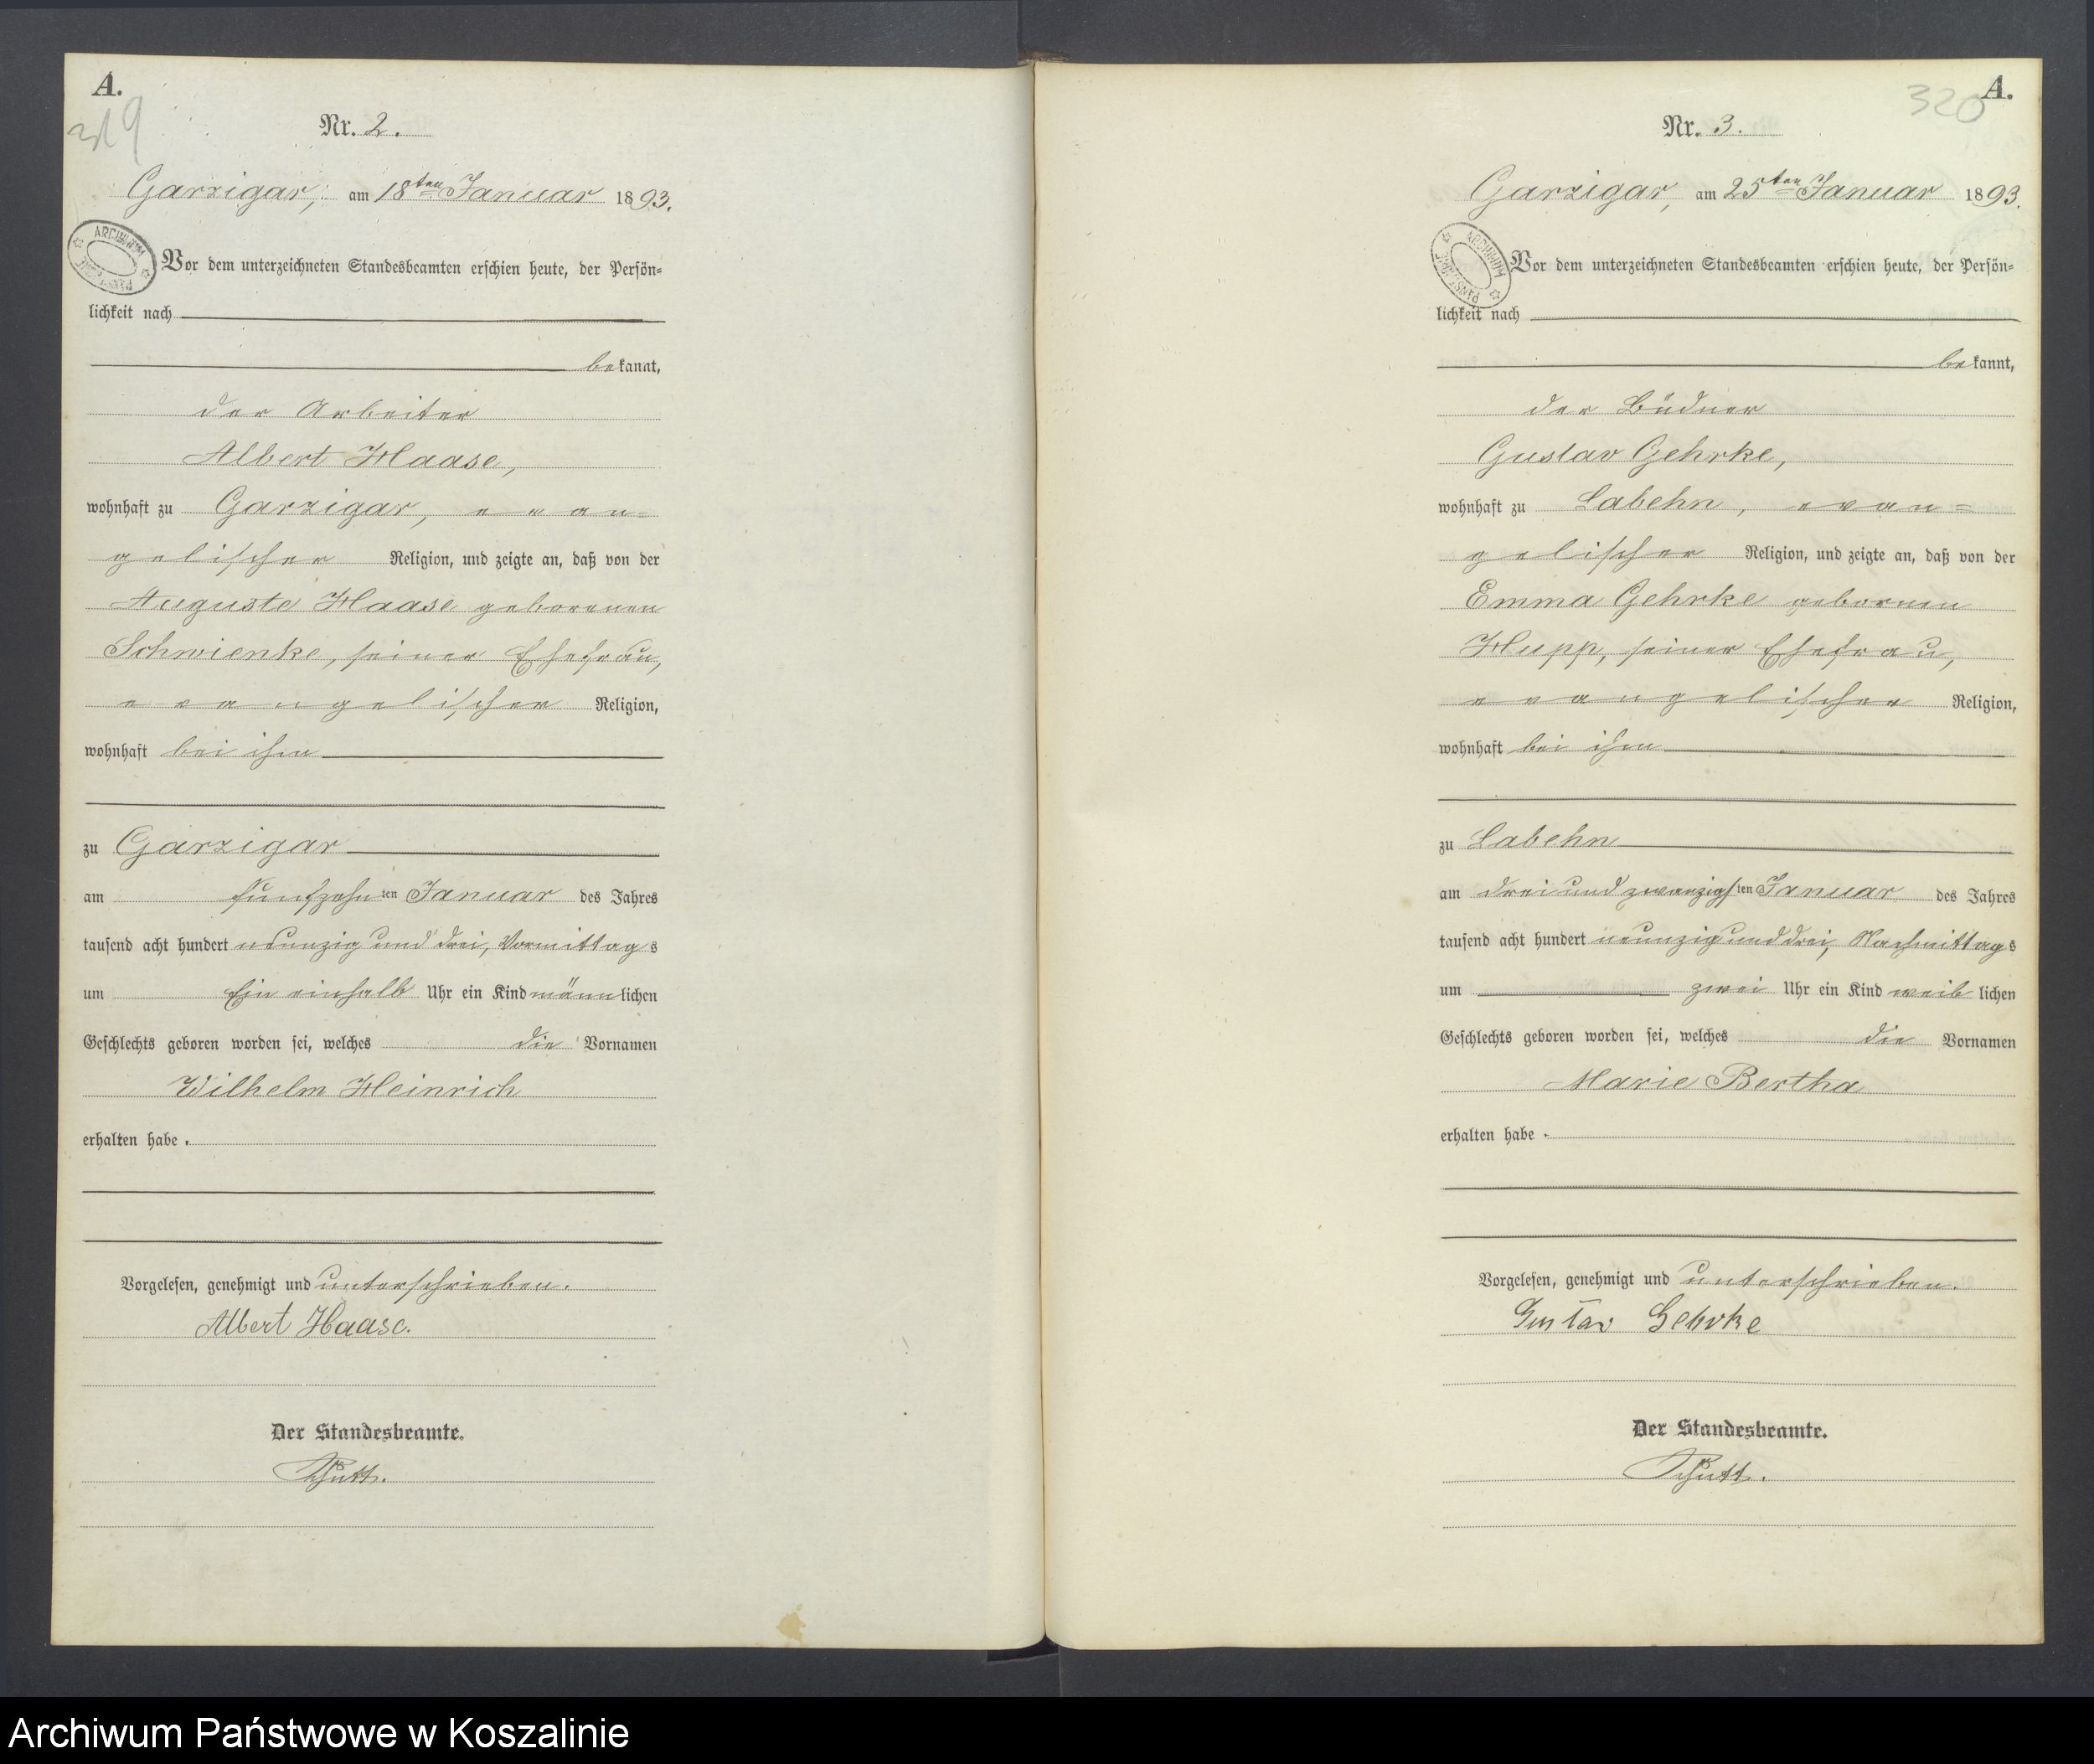 A.
319
Nr. 2.
Garzigar, am 18ten Januar 1893.
ARCHIWUM PAŃSTWOWE
Vor dem unterzeichneten Standesbeamten erschien heute, der Persön-
lichkeit nach
bekannt,
der Arbeiter
Albert Haase,
wohnhaft zu Garzigar, evan=
gelischer Religion, und zeigte an, daß von der
Auguste Haase geborenen
Schwienke, seiner Ehefrau,
evangelischer Religion,
wohnhaft bei ihm
zu Garzigar
am fünfzehnten Januar des Jahres
tausend acht hundert neunzig und drei, Vormittags
um Ein einhalb Uhr ein Kind männlichen
Geschlechts geboren worden sei, welches die Vornamen
Wilhelm Heinrich
erhalten habe.
Vorgelesen, genehmigt und unterschrieben.
Albert Haase.
Der Standesbeamte.
A.
320
Nr. 3.
Garzigar, am 25ten Januar 1893.
ARCHIWUM PAŃSTWOWE
Vor dem unterzeichneten Standesbeamten erschien heute, der Persön-
lichkeit nach
bekannt,
der Büdner
Gustav Gehrke,
wohnhaft zu Labehn, evan=
gelischer Religion, und zeigte an, daß von der
Emma Gehrke gebornen
Hupp, seiner Ehefrau,
evangelischer Religion,
wohnhaft bei ihm
zu Labehn
am dreiundzwanzigsten Januar des Jahres
tausend acht hundert neunzig und drei, Nachmittags
um zwei Uhr ein Kind weiblichen
Geschlechts geboren worden sei, welches die Vornamen
Marie Bertha
erhalten habe.
Vorgelesen, genehmigt und unterschrieben.
Gustav Gehrke
Der Standesbeamte.
Archiwum Państwowe w Koszalinie